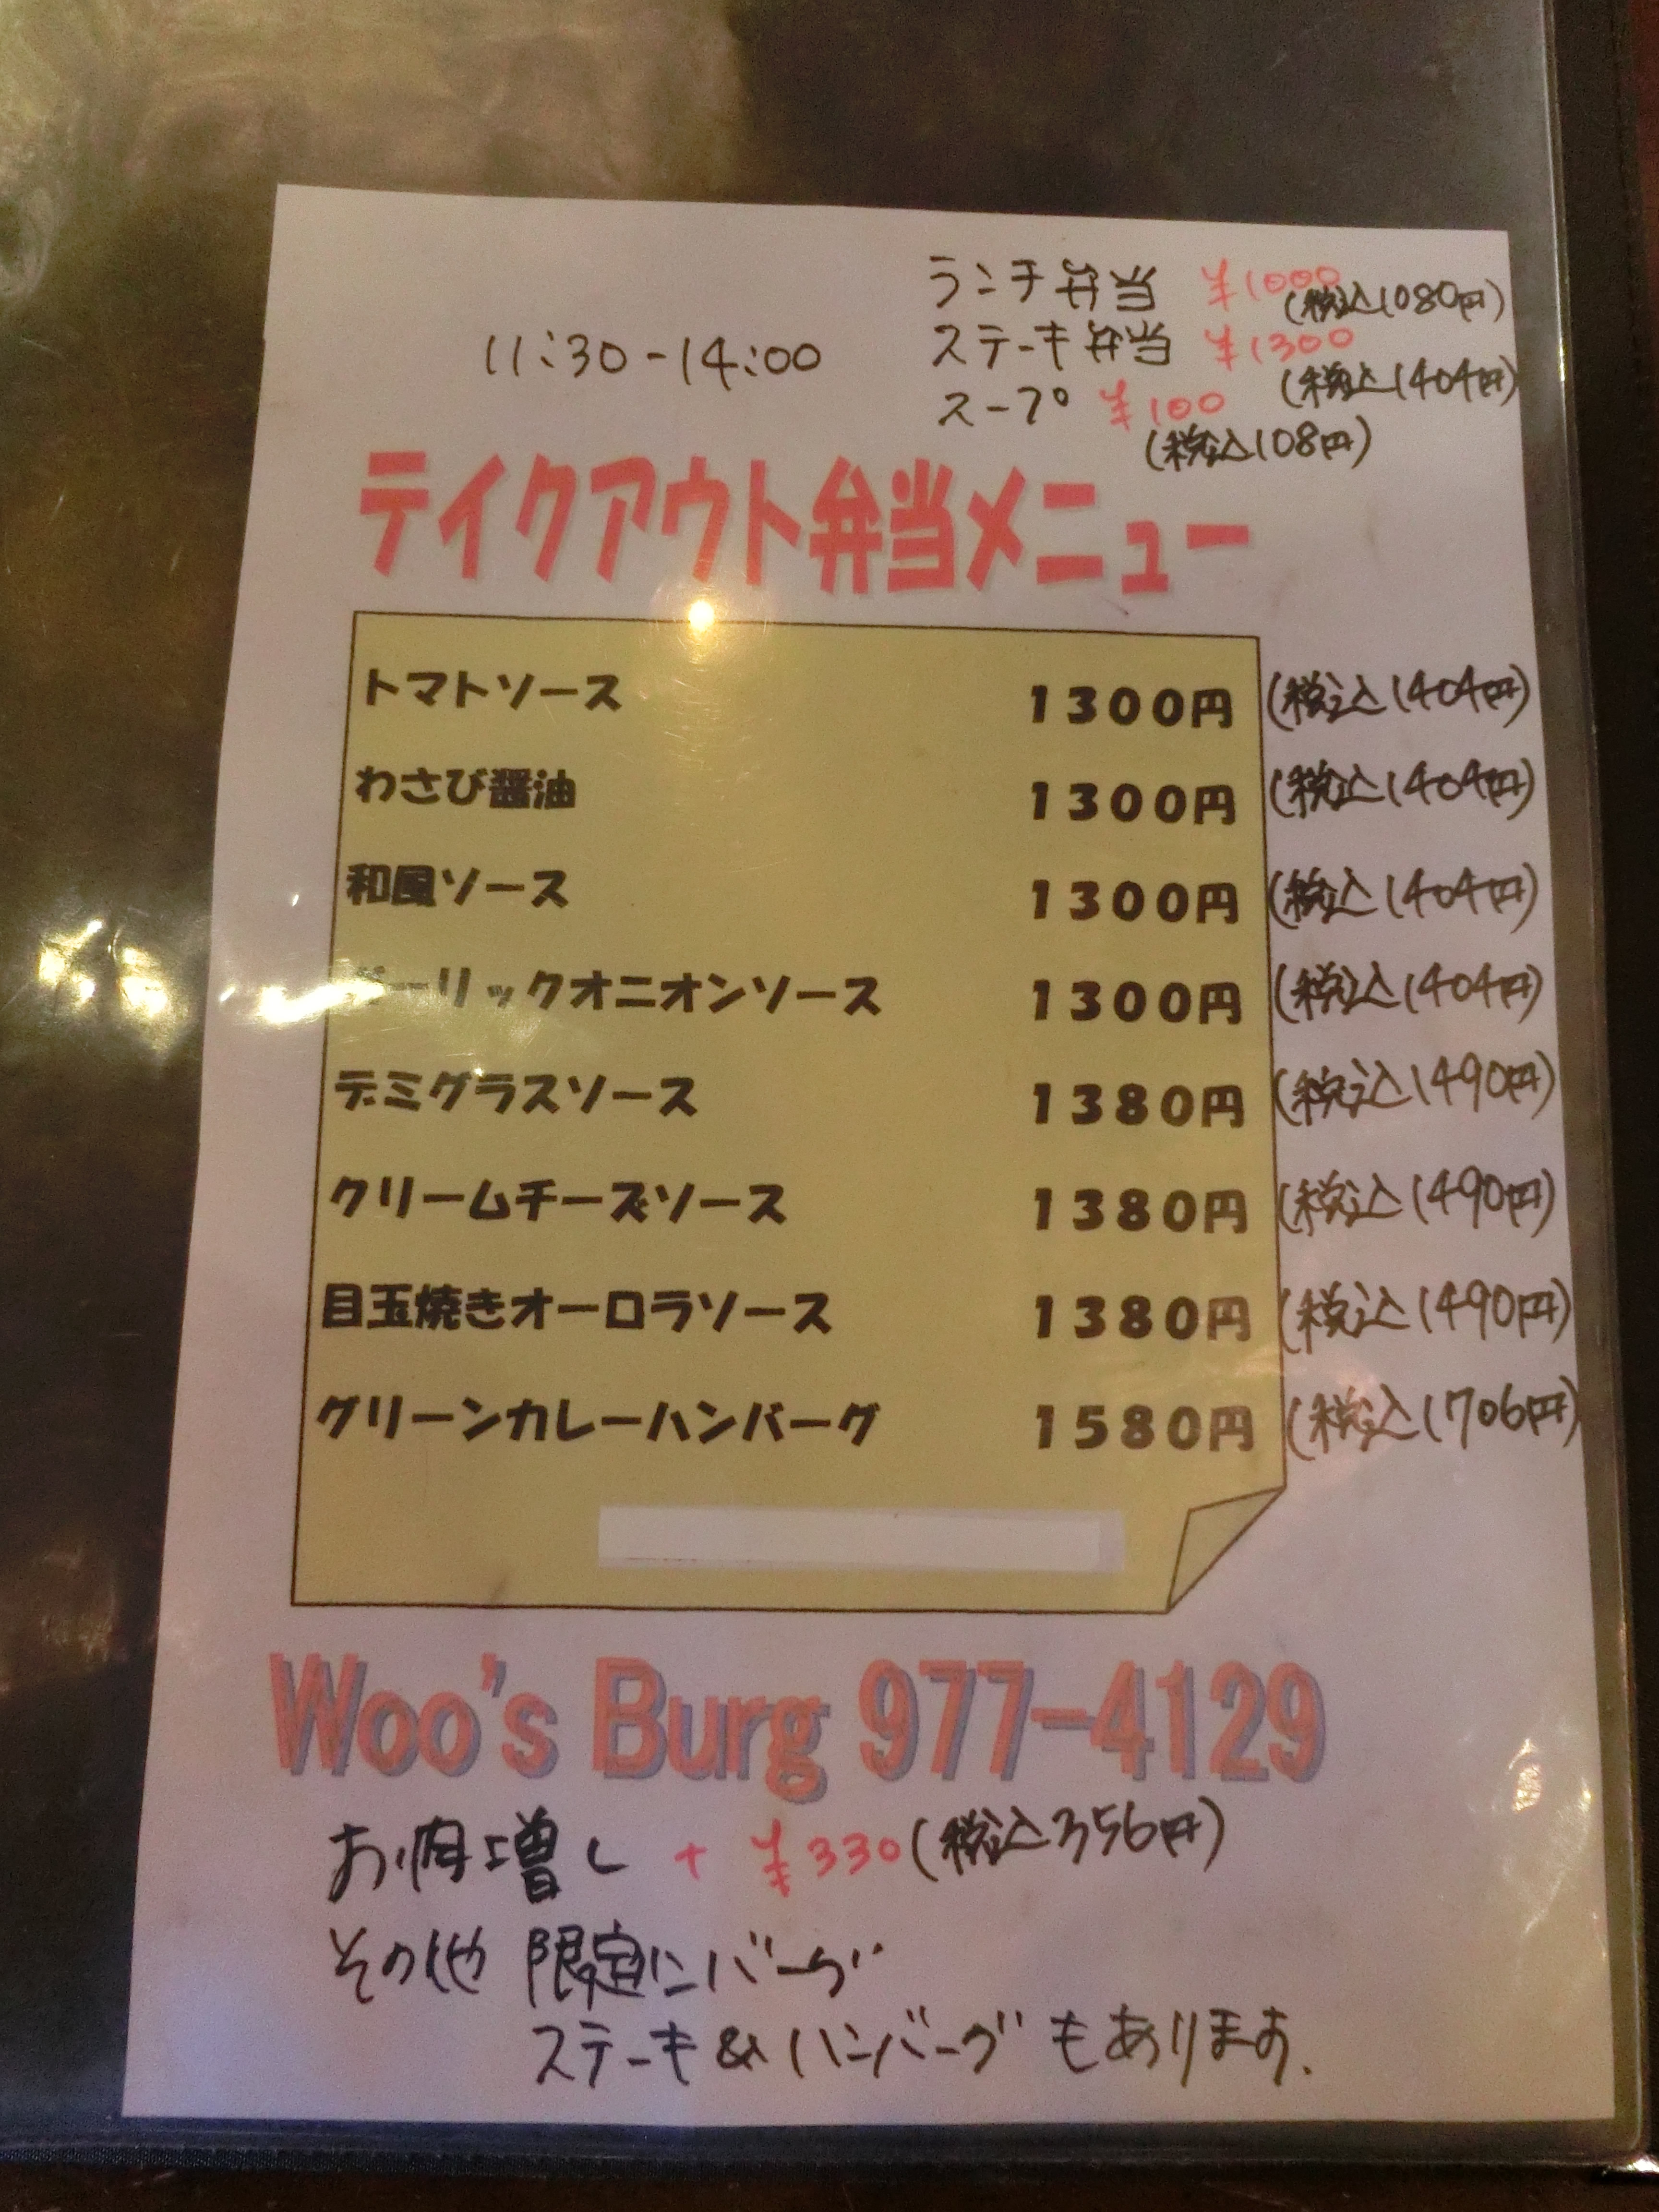 ランチ弁当 ¥1000 (税込1080円)
11:30-14:00 ステーキ弁当 ¥1300 (税込1404円)
スープ ¥100 (税込108円)
テイクアウト弁当メニュー
トマトソース 1300円 (税込1404円)
わさび醤油 1300円 (税込1404円)
和風ソース 1300円 (税込1404円)
ガーリックオニオンソース 1300円 (税込1404円)
デミグラスソース 1380円 (税込1490円)
クリームチーズソース 1380円 (税込1490円)
目玉焼きオーロラソース 1380円 (税込1490円)
グリーンカレーハンバーグ 1580円 (税込1706円)
Woo's Burg 977-4129
お肉増し + ¥330 (税込356円)
その他 限定ハンバーグ
ステーキ&ハンバーグもあります.